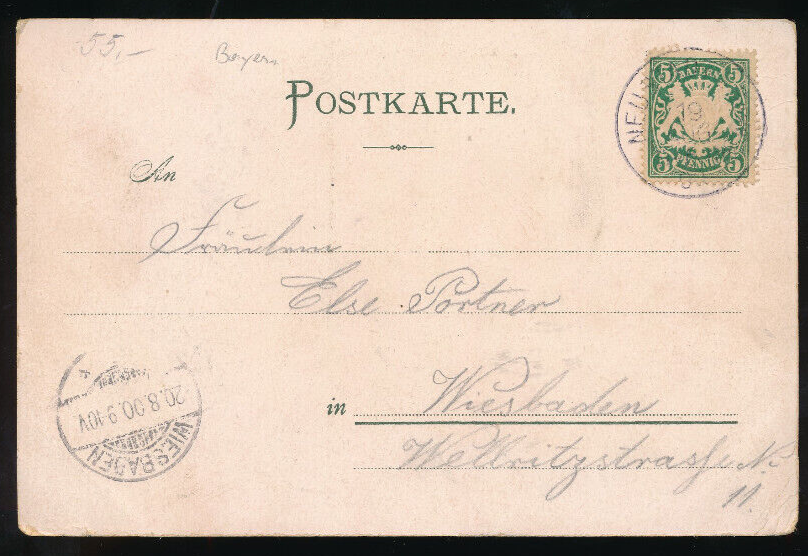 55,–
Bayern
POSTKARTE.
5 BAYERN 5
5 PFENNIG 5
19
An
Fräulein
Else Portner
in Wiesbaden
Wellritzstrasse No
11.
20.8.00.9-10V
WIESBADEN